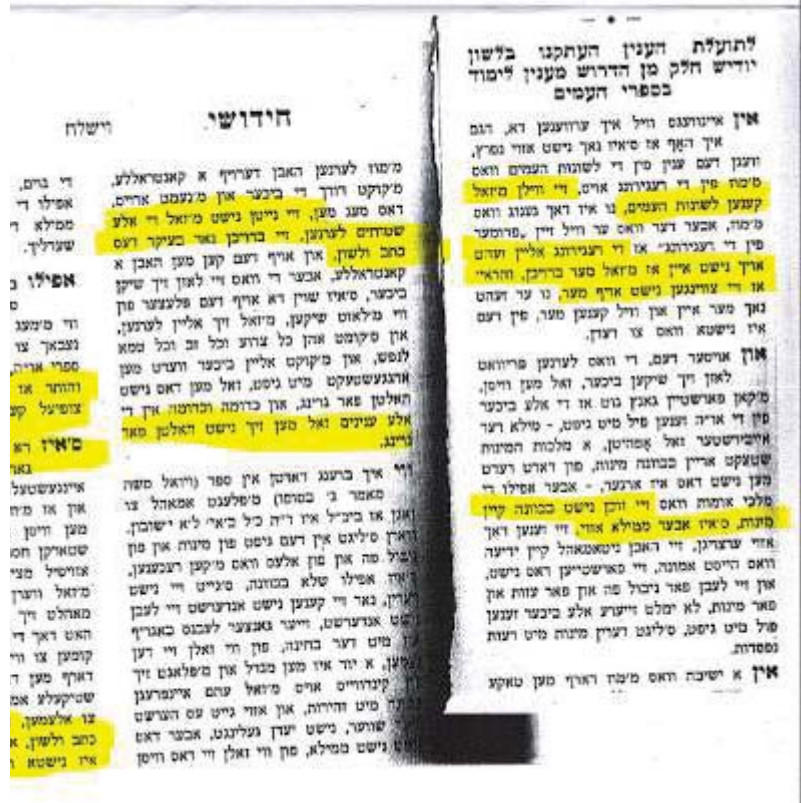 לתועלת הענין העתקנו בלשון
יודיש חלק מן הדרוש מענין לימוד
בספרי העמים
אין איינוועגס וויל איך ערוועגען דא, הגם
איך האף אז ס'איז נאך נישט אזוי נפרץ,
וועגן דעם ענין פון די לשונות העמים וואס
מ'מוז פון די רעגירונג אויס, זיי ווילן מ'זאל
קענען לשונות העמים, נו איז דאך גענוג וואס
מ'מוז, אבער דער וואס ער וויל זיין „פרומער
פון די רעגירונג" אז די רעגירונג אליין זעהט
אויך נישט איין אז מ'זאל מער ברויכן, והראי'
אז זיי צווינגען נישט אויף מער, נו ער זעהט
נאך מער איין און וויל קענען מער, פון דעם
איז נישטא וואס צו רעדן.
און אויסער דעם, די וואס לערנען פריוואט
לאזן זיך שיקן ביכער, זאל מען וויסן,
מ'קאן פארשטיין גאנץ גוט אז די אלע ביכער
פון די אר"ה זענען פיל מיט גיפט, - מילא דער
אייבירשטער זאל אפהיטן, א מלכות המינות
שטעקט אריין בכוונה מינות, פון דארט רעדט
מען נישט דאס איז ארגער, - אבער אפילו די
מלכי אומות וואס זיי זוכן נישט בכוונה קיין
מינות, ס'איז אבער ממילא אזוי, זיי זענען דאך
אזוי ערציהגן, זיי האבן ניטאמאהל קיין ידיעה
וואס הייסט אמונה, זיי פארשטייען דאס נישט,
און זיי לעבן פאר ניבול פה און פאר עזות און
פאר מינות, לא ימלט זייערע אלע ביכער זענען
פול מיט גיפט, ס'ליגט דערין מינות מיט דעות
נפסדות.
אין א ישיבה וואס מ'מוז דארף מען טאקע
חידושי
וישלח
מ'מוז לערנען האבן דערויף א קאנטראללע,
מ'קוקט דורך די ביכער און מ'נעמט ארויס,
דאס מעג מען, זיי נייטן נישט מ'זאל די אלע
שטותים לערנען, זיי ברויכן נאר בעיקר דעם
כתב ולשון, און אויף דעם קען מען האבן א
קאנטראללע, אבער די וואס זיי לאזן זיך שיקן
ביכער, ס'איז שוין דא אויף דעם פלעצער פון
ווי מ'לאזט שיקען, מ'זאל זיך אליין לערנען,
און ס'קומט אהן כל צרוע וכל זב וכל טמא
לנפש, און מ'קוקט אליין ביכער ווערט מען
אנגעשטעקט מיט גיפט, זאל מען דאס נישט
האלטן פאר גרינג, און כדומה וכדומה אין די
אלע ענינים זאל מען זיך נישט האלטן פאר
גרינג.
איך ברענג דארטן אין ספר (ויואל משה
מאמר ג' בסופו) מ'פלעגט אמאהל צו
זאגן אז בינ"ל איז ר"ת כ"ל בא"י ל"א י"שובון,
ס'ליגט אין דעם גיפט פון מינות און פון
ניבול פה און פון אלעס וואס מ'קען רעכענען,
אפילו שלא בכוונה, ס'גייט זיי נישט
דערין, נאר זיי קענען נישט אנדערשט זיי לעבן
אנדערשט, זייער גאנצער לעבנס באגריף
מיט דער בחינה, פון ווי זאלן זיי דען
א יוד איז מען מגדל און מ'פלאגט זיך
קינדווייס אויס מ'זאל עהם איינפרעגן
מיט זהירות, און אזוי גייט עס הערשט
שווער, נישט יעדן געלינגט, אבער דאס
נישט ממילא, פון ווי זאלן זיי דאס וויסן
די גוים,
אפילו די
ממילא
שערליך.
אפילו
ווי מ'מעג
נעבאך צו
ספרי אר"ה,
והותר אז
צופיעל
ס'איז דא
איינגעשטעל
און אז
מען וויסן
שטארקן
אזויפיל
מ'זאל ווערן
מאהלט זיך
האט דאך די
קומען צו
דארף מען
שטיקעלע
צו אלעמען,
כתב ולשון,
איז נישטא